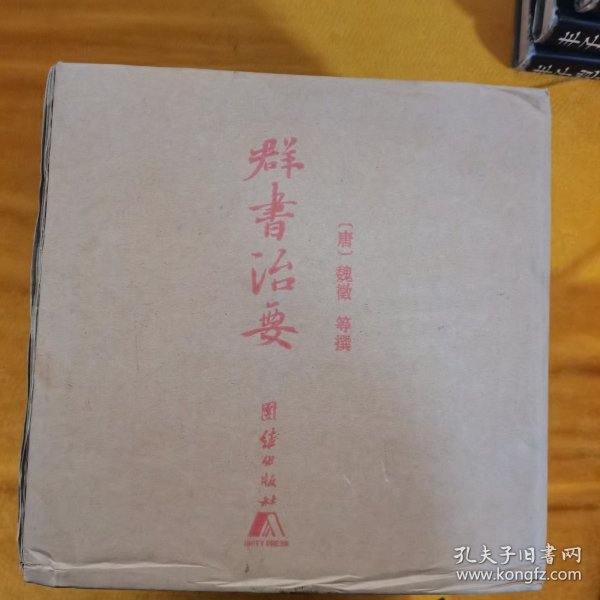 群書治要
〔唐〕魏徵 等撰
團結出版社
UNITY PRESS
孔夫子旧书网
www.kongfz.com